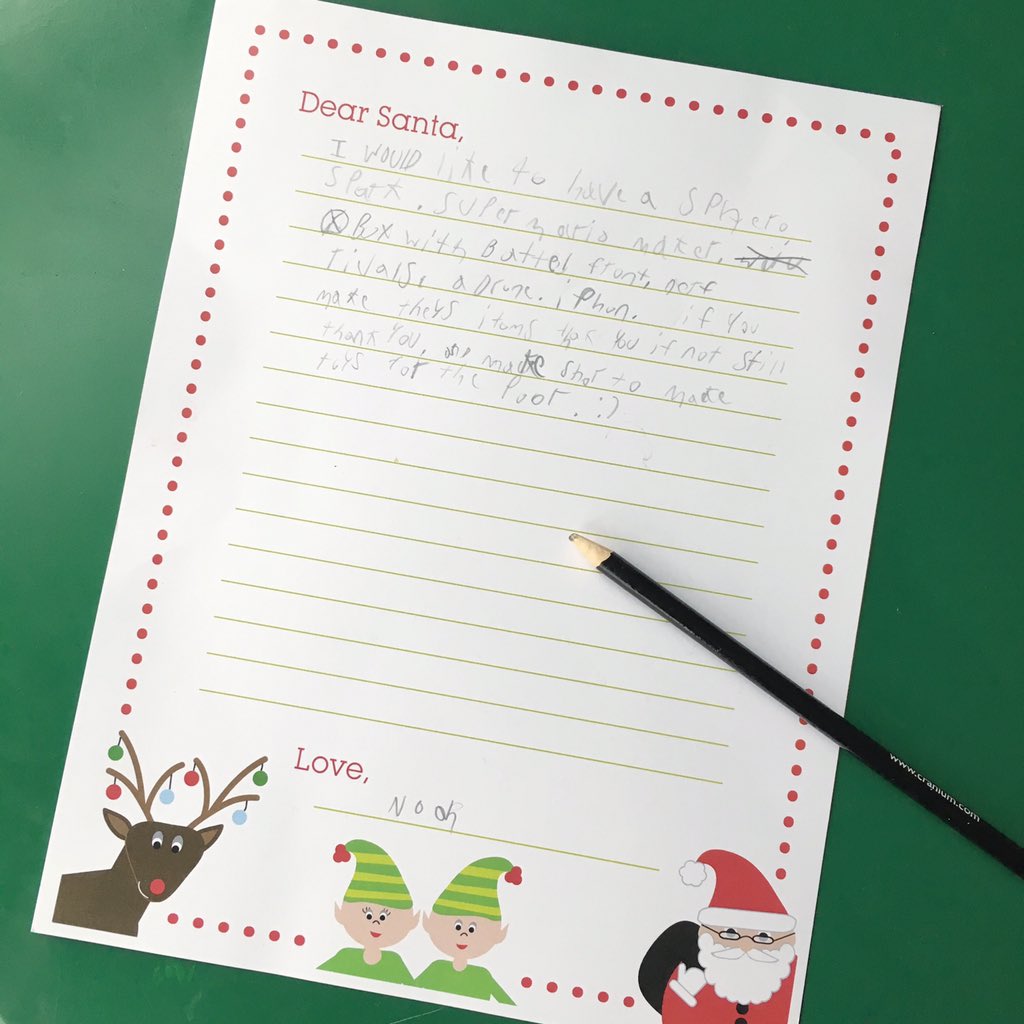 Dear Santa,
I WOULD like to have a SPhero
SPark. SUPer mario maker.
X Box with Buttel front, nerf
rivals, a Drone. iPhon. if You
make theys items thak You if not still
thank YOU, and make shor to make
toys for the Poor. :)
Love,
Noah
www.cranium.com